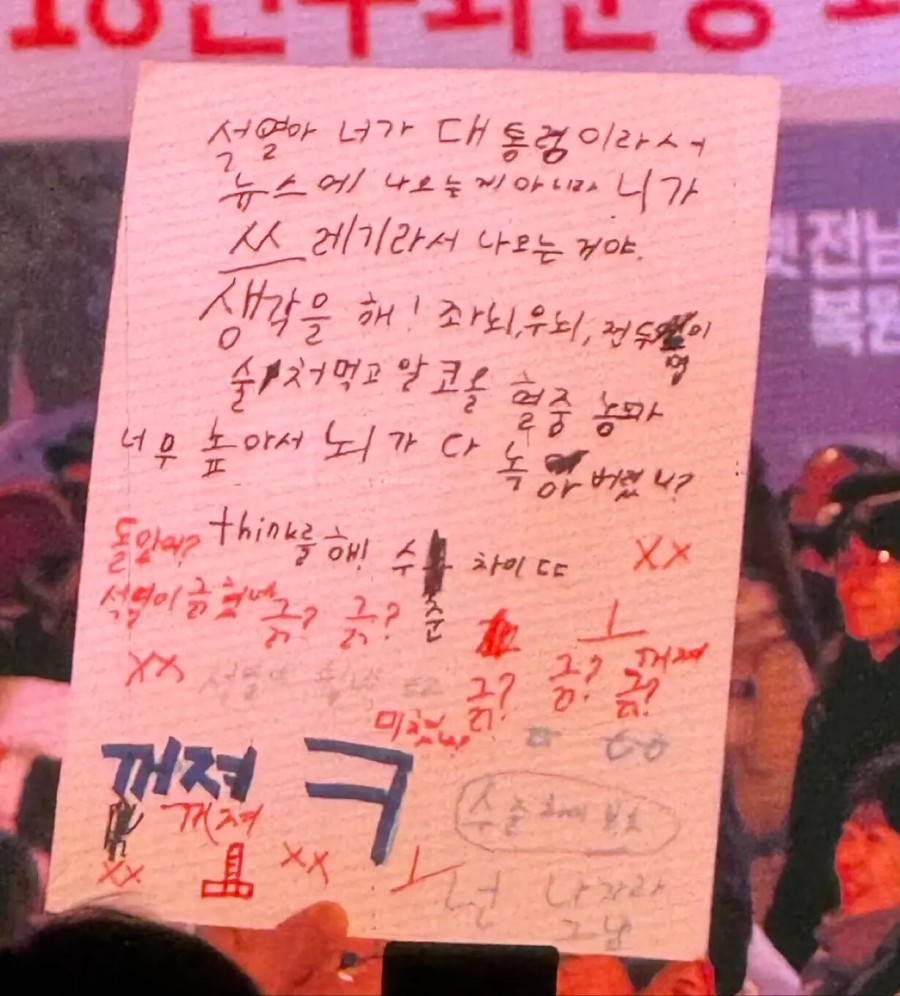 석열아 너가 대통령이라서
뉴스에 나오는게 아니라 니가
쓰레기라서 나오는 거야.
생각을 해! 좌뇌, 우뇌, 전두엽이
술 처먹고 알코올 혈중 농도가
너무 높아서 뇌가 다 녹아버렸니?
돌았어? think를 해! 수준 차이 ㄷㄷ
XX
석열이 긁혔네
긁? 긁? ㅗ
XX 긁? 긁? 긁? 꺼져
미쳤냐
ㅁ
꺼져 ㅋ
꺼져
XX ㅗ XX ㅗ
넌 나가라
그냥